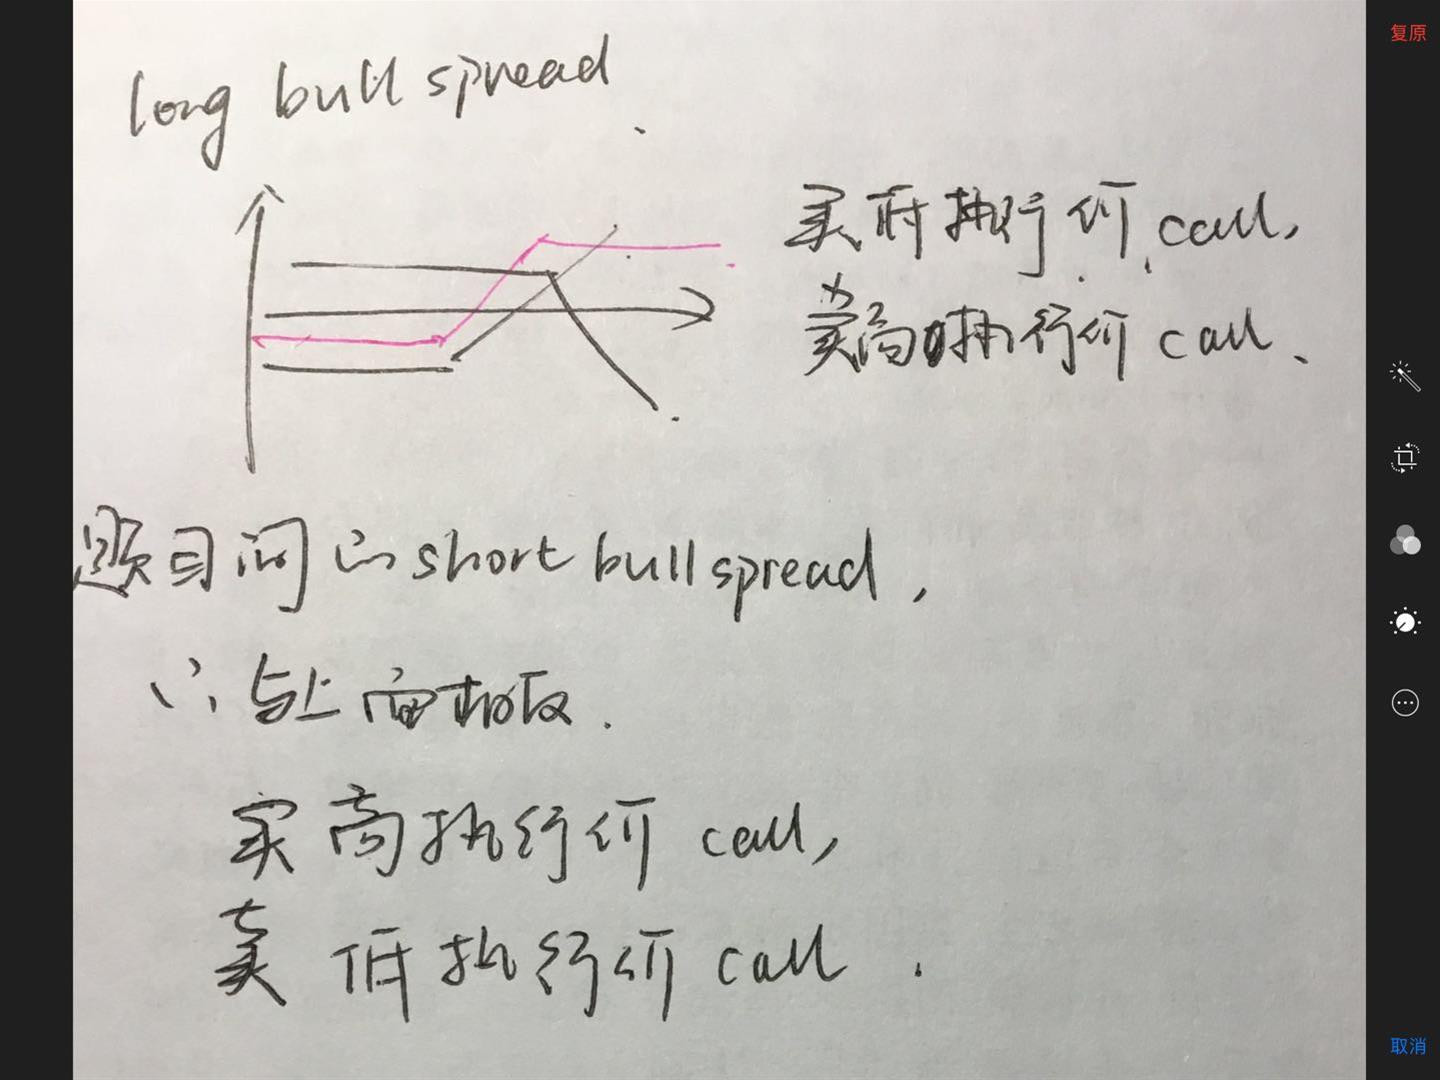 long bull spread.
买低执行价 call,
卖高执行价 call、
题目问的 short bull spread,
∴ 与上面相反.
买高执行价 call,
卖低执行价 call.
复原
取消